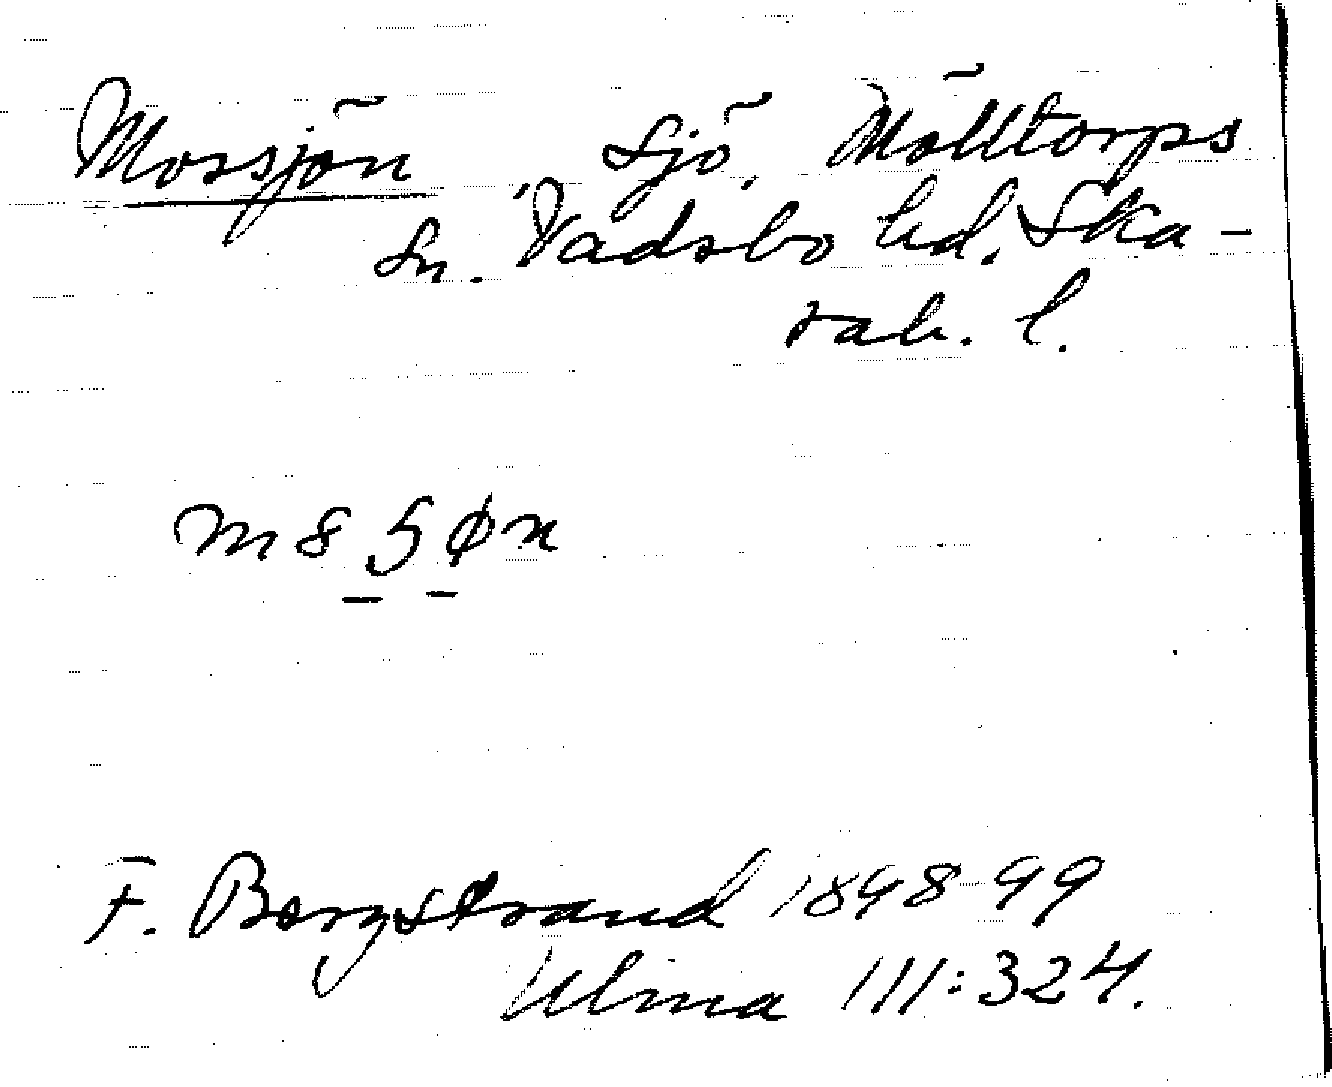 Mossjön Sjö, Mölltorps
sn. Vadsbo hd. Ska-
rab. l.
F. Bergstrand 1898-99
Ulma 111:324.